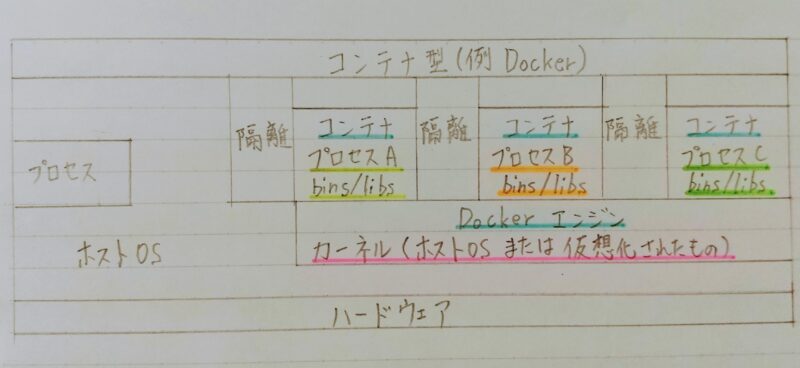 コンテナ型(例 Docker)
隔離
コンテナ
プロセスA
bins/libs
隔離
コンテナ
プロセスB
bins/libs
隔離
コンテナ
プロセスC
bins/libs
プロセス
Docker エンジン
カーネル(ホストOS または 仮想化されたもの)
ホストOS
ハードウェア